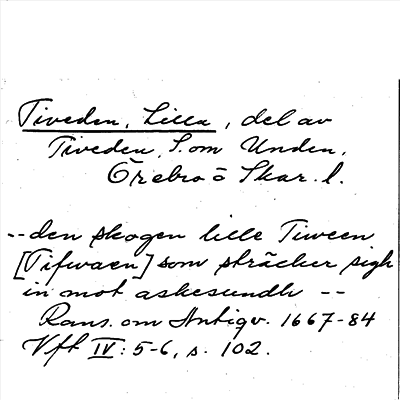 Tiveden, Lilla, del av
Tiveden, S. om Unden,
Örebro o Skar. l.
-- den skogen lille Tiween
[Tifwaen] som sträcker sigh
in mot askesundh --
Rans. om Antiqv. 1667-84
Vft IV: 5-6, s. 102.